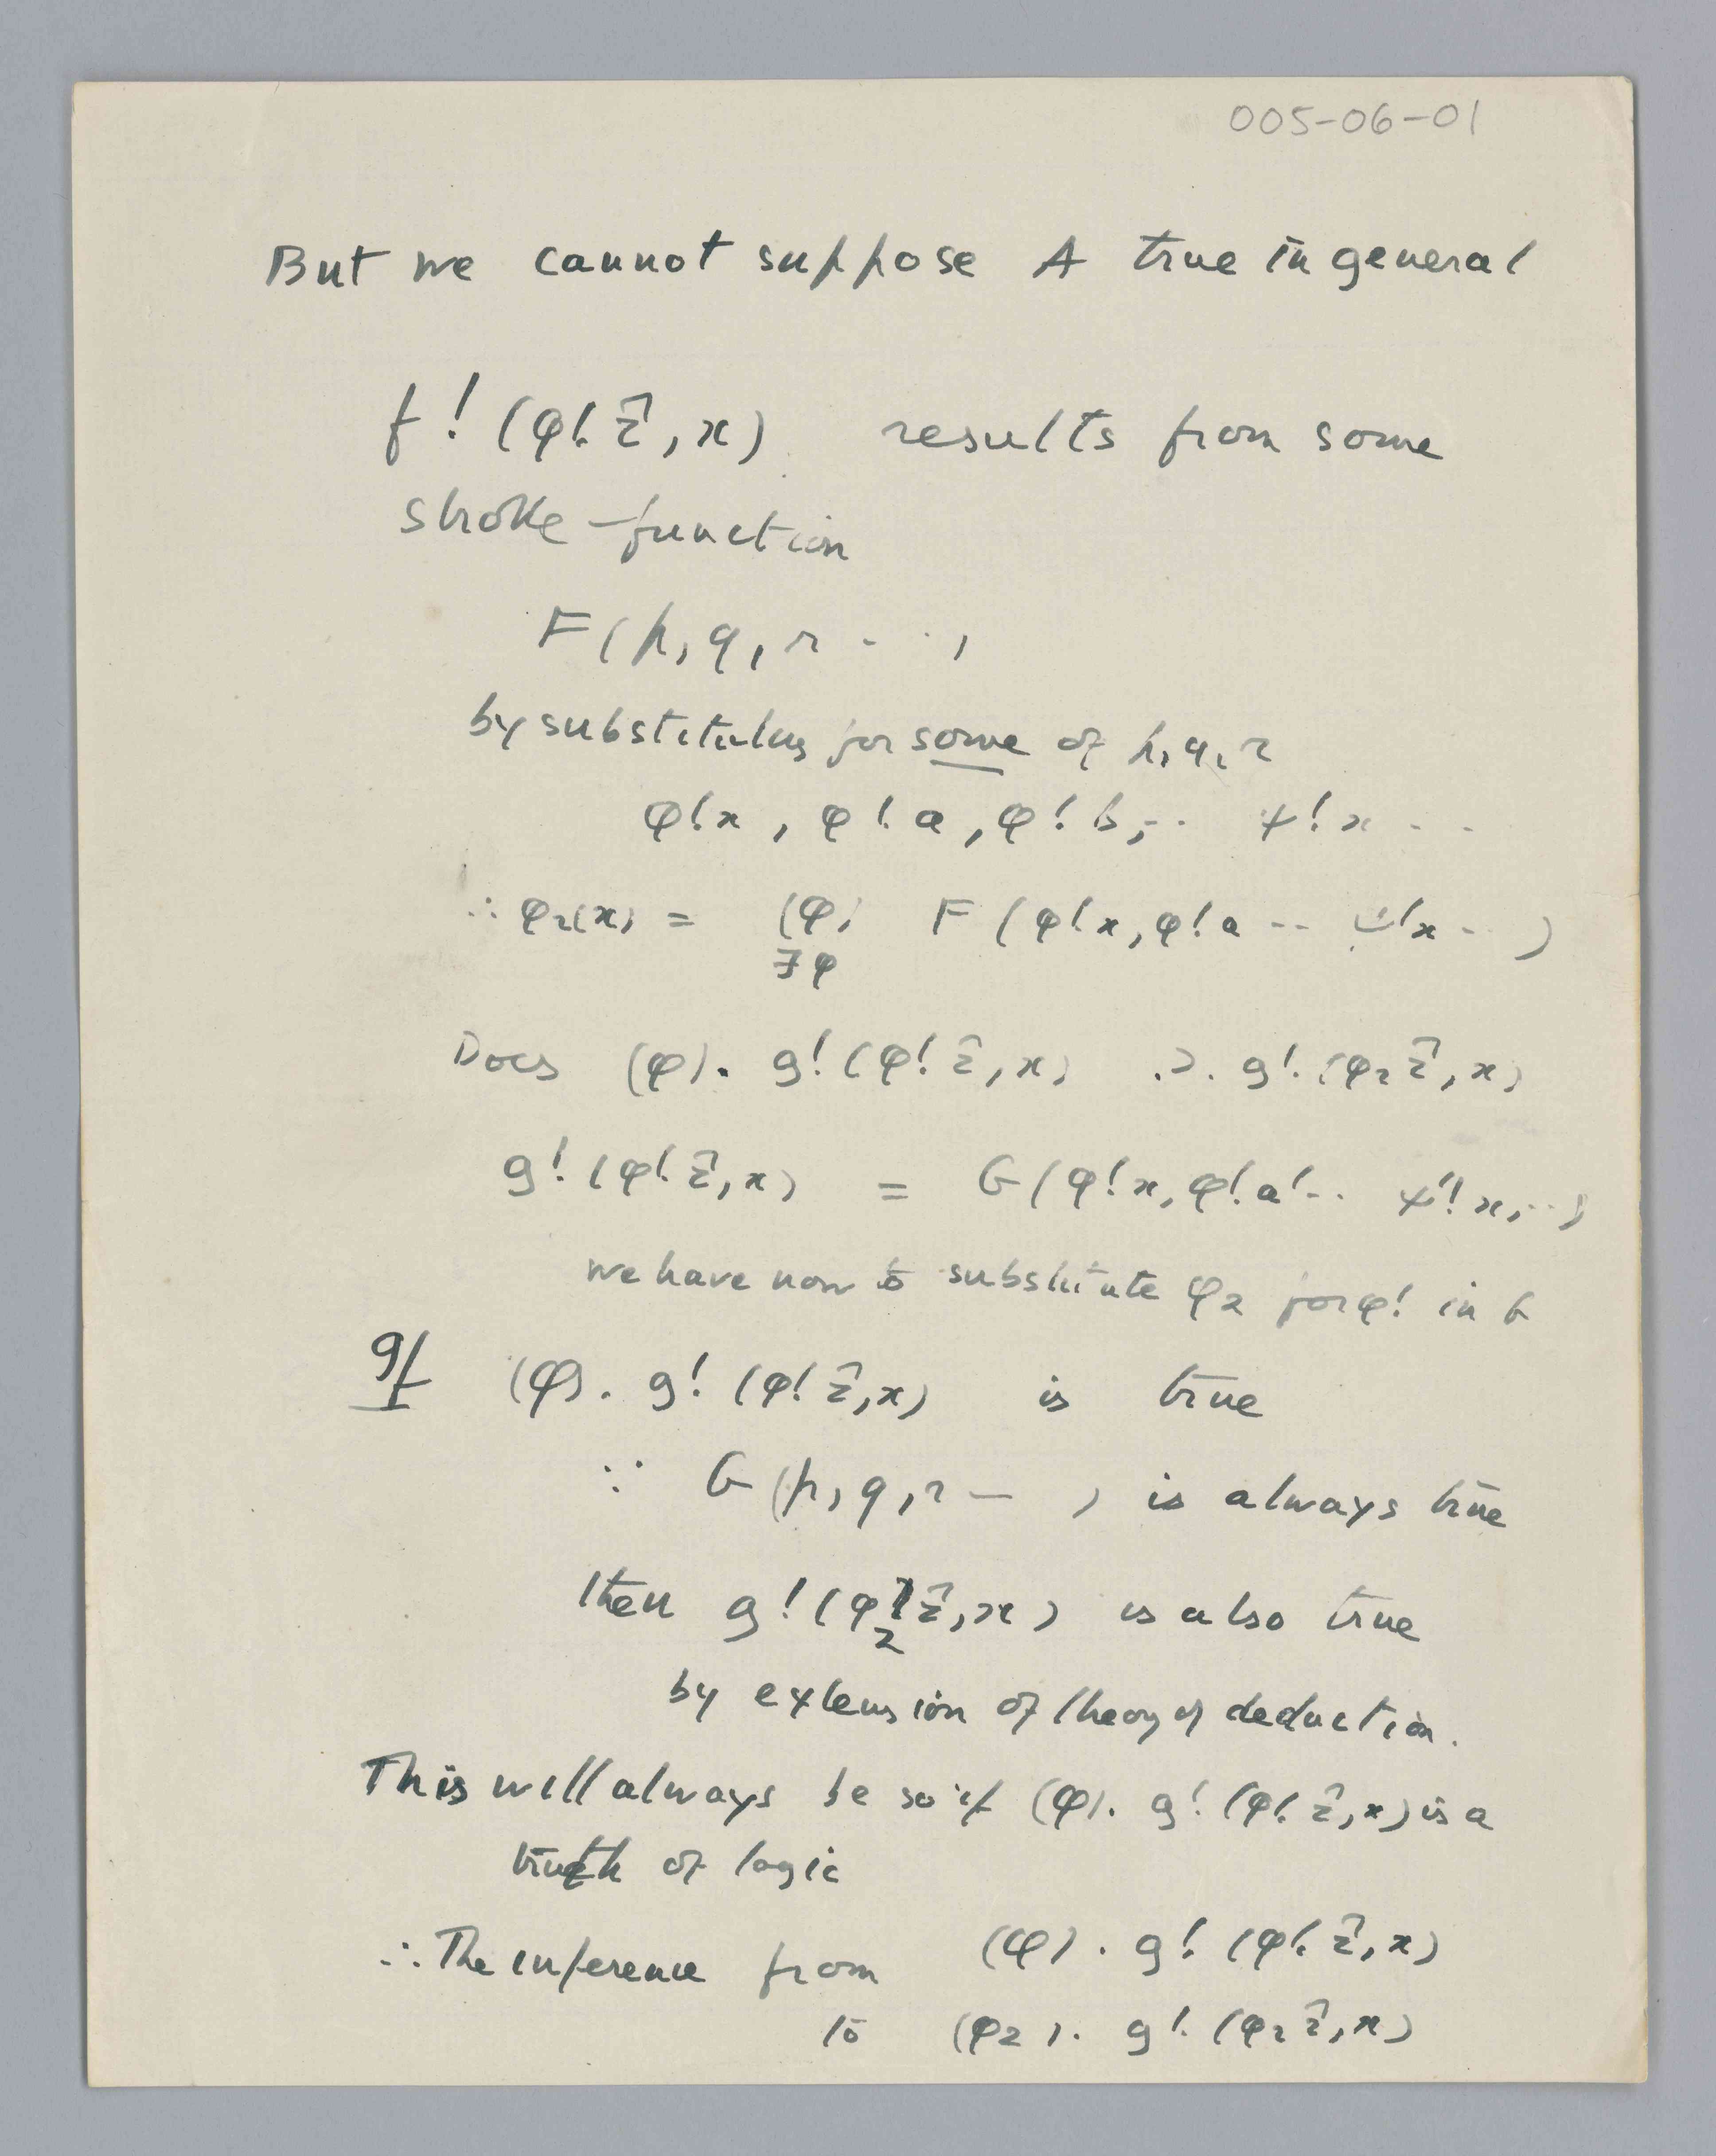 005-06-01
But we cannot suppose A true in general
f! (φ! ẑ, x) results from some
stroke-function
F(p, q, r - - )
by substituting for some of p, q, r
φ!x, φ!a, φ!b, -- ψ!x - -
∴ φ₂(x) = (φ) F (φ!x, φ!a -- ψ!x -- )
∃φ
Does (φ). g! (φ! ẑ, x) .⊃. g! (φ₂ ẑ, x)
g! (φ! ẑ, x) = G(φ!x, φ!a! -- ψ!x, --)
We have now to substitute φ₂ for φ! in G
If (φ). g! (φ! ẑ, x) is true
∵ G (p, q, r — ) is always true
then g! (φ₂ ẑ, x) is also true
by extension of theory of deduction.
This will always be so if (φ). g! (φ! ẑ, x) is a
truth of logic
∴ The inference from (φ). g! (φ! ẑ, x)
to (φ₂). g! (φ₂ ẑ, x)